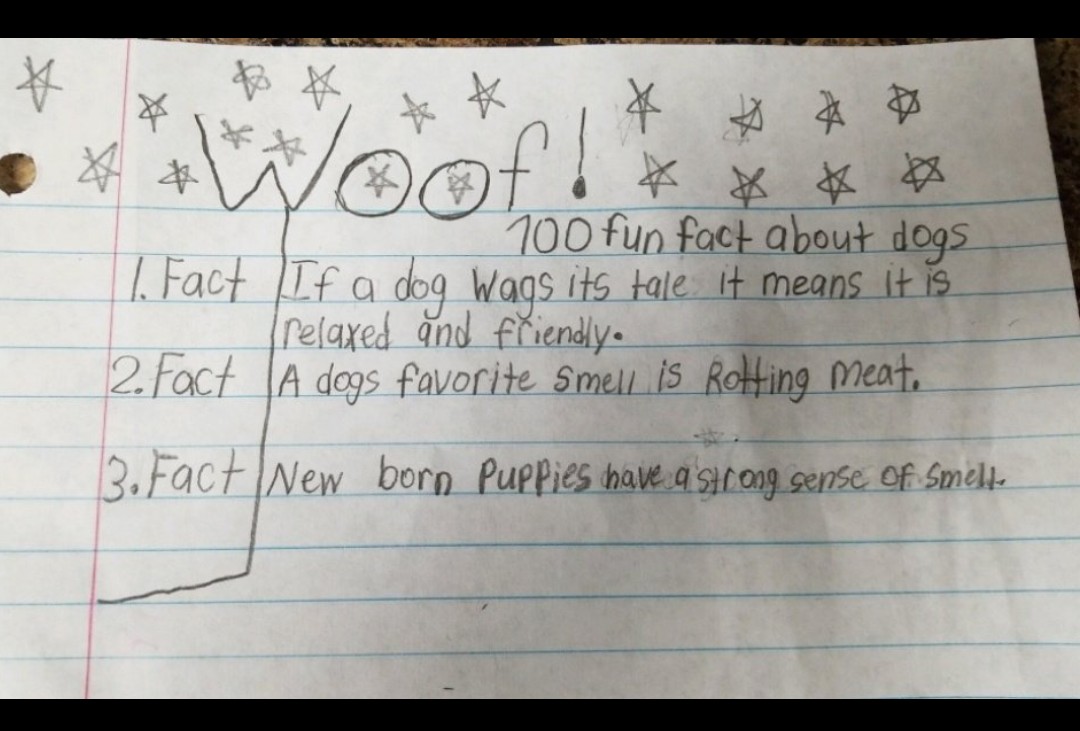 Woof!
100 fun fact about dogs
1. Fact If a dog wags its tale it means it is
relaxed and friendly.
2. Fact A dogs favorite smell is Rotting meat.
3. Fact New born Puppies have a strong sense of smell.